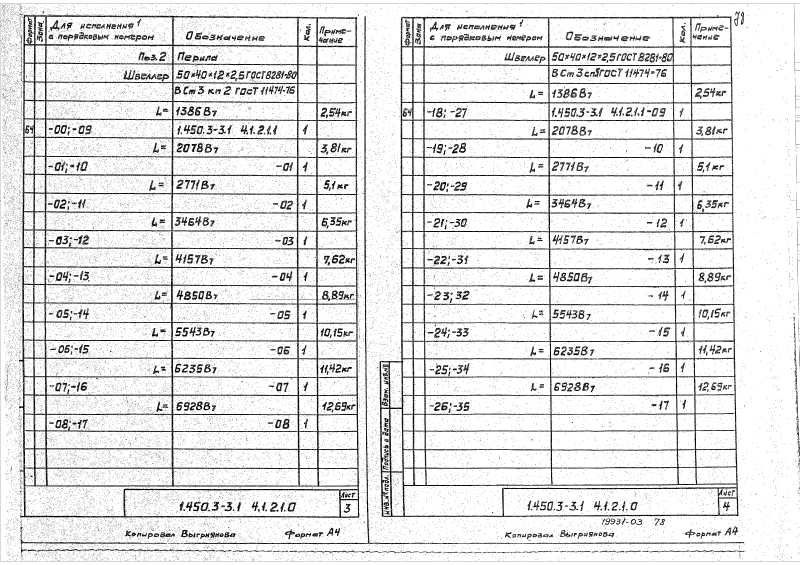 78
Формат
Зона
Для исполнения¹ с порядковым номером
Обозначение
Кол.
Примечание
Поз. 2 Перила
Швеллер 50×40×12×2,5 ГОСТ 8281-80
В Ст 3 кп 2 ГОСТ 11474-76
L= 1386 В7 2,54кг
БЧ -00;-09 1.450.3-3.1 4.1.2.1.1 1
L= 2078 В7 3,81кг
-01;-10 -01 1
L= 2771 В7 5,1кг
-02;-11 -02 1
L= 3464 В7 6,35кг
-03;-12 -03 1
L= 4157 В7 7,62кг
-04;-13 -04 1
L= 4850 В7 8,89кг
-05;-14 -05 1
L= 5543 В7 10,15кг
-06;-15 -06 1
L= 6235 В7 11,42кг
-07;-16 -07 1
L= 6928 В7 12,69кг
-08;-17 -08 1
1.450.3-3.1 4.1.2.1.0
Лист
3
Копировал Выгриянова Формат А4
Формат
Зона
Для исполнения¹ с порядковым номером
Обозначение
Кол.
Примечание
Швеллер 50×40×12×2,5 ГОСТ 8281-80
В Ст 3 сп5 ГОСТ 11474-76
L= 1386 В7 2,54кг
БЧ -18;-27 1.450.3-3.1 4.1.2.1.1-09 1
L= 2078 В7 3,81кг
-19;-28 -10 1
L= 2771 В7 5,1кг
-20;-29 -11 1
L= 3464 В7 6,35кг
-21;-30 -12 1
L= 4157 В7 7,62кг
-22;-31 -13 1
L= 4850 В7 8,89кг
-23;32 -14 1
L= 5543 В7 10,15кг
-24;-33 -15 1
L= 6235 В7 11,42кг
-25;-34 -16 1
L= 6928 В7 12,69кг
-26;-35 -17 1
Взам. инв.№
Подпись и дата
Инв.№ подл.
1.450.3-3.1 4.1.2.1.0
Лист
4
19931-03 78
Копировал Выгриянова Формат А4